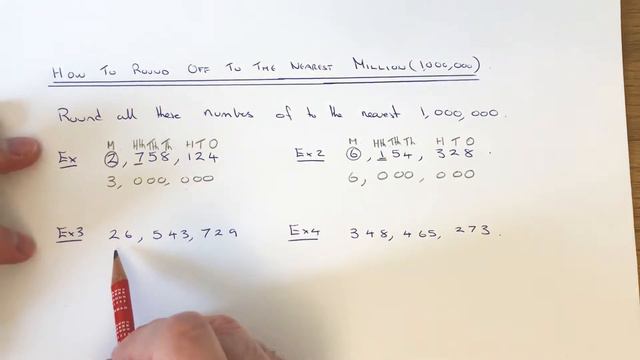 How To Round Off To The Nearest Million (1,000,000).
Round all these numbers of to the nearest 1,000,000.
M HTh TTh Th H T O
Ex 2,758,124
3,000,000
M HTh TTh Th H T O
Ex 2 6,154,328.
6,000,000
Ex3 26,543,729
Ex4 348,465,273.